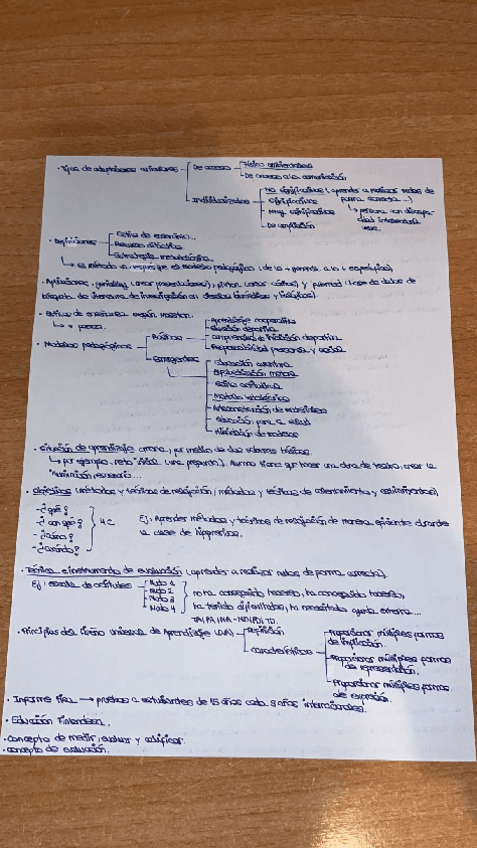 · Tipos de adaptaciones curriculares
De acceso
Físico ambientales
De acceso a la comunicación
Individualizadas
No significativas (aprender a realizar nudos de forma correcta...)
significativas
Muy significativas
↳ persona con discapacidad intelectual leve.
De ampliación
· Definiciones
Estilos de enseñanza...
Recurso didáctico
Estrategia metodológica
↳ el método es mayor que el modelo pedagógico (de la + general a la + específica)
· Aplicaciones: genially (crear presentaciones), (crear cómics) y pubmed (base de datos de búsqueda de literatura de investigación en ciencias biomédicas y biológicas).
· Estilos de enseñanza según Mosston.
· Modelos pedagógicos
Básicos
Aprendizaje cooperativo
Educación deportiva
comprensivo de iniciación deportiva
Responsabilidad personal y social
Emergentes
Educación aventura
Alfabetización motora
Estilo actitudinal
Modelo ludotécnico
Autoconstrucción de materiales
Educación para la salud
Hibridación de modelos
· Situación de aprendizaje: por medio de dos saberes básicos.
↳ por ejemplo: reto inicial (una pregunta). Alumno tiene que hacer una obra de teatro, crear la
· Objetivos (métodos y técnicas de relajación / métodos y técnicas de calentamientos y estiramientos)
- ¿qué?
- ¿con qué?
- ¿cómo?
- ¿cuándo?
4 C
Ej: Aprender métodos y técnicas de relajación de manera eficiente durante la clase de hipopresivos.
· Técnica e instrumento de evaluación (aprender a realizar nudos de forma correcta).
Ej: escala de actitudes
Nudo 1
Nudo 2
Nudo 3
Nudo 4
no ha conseguido hacerlo, ha conseguido hacerlo, ha tenido dificultades, ha necesitado ayuda externa...
· Principios del Diseño Universal de Aprendizaje (DUA)
Definición
Características
Proporcionar múltiples formas de implicación.
Proporcionar múltiples formas de representación.
Proporcionar múltiples formas de expresión.
· Informe Pisa → pruebas a estudiantes de 15 años cada 3 años internacionales.
· Educación Finlandesa.
· Concepto de medir, evaluar y calificar.
· concepto de evaluación.